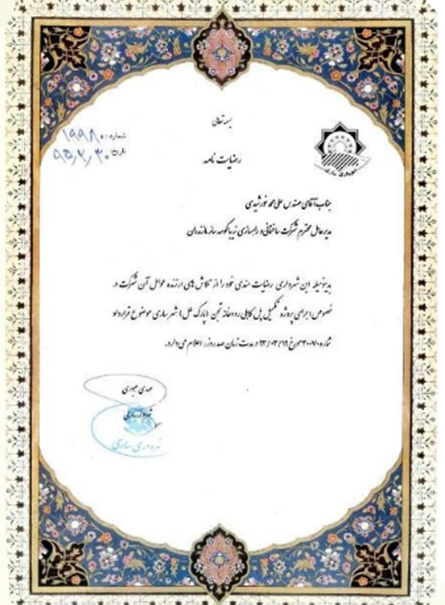 بسمه تعالی
شماره: ۱۹۹۸۰
تاریخ: ۹۵,۲,۳۰
شهرداری ساری
رضایت نامه
جناب آقای مهندس علی محمد خورشیدی
مدیرعامل محترم شرکت ساختمانی و راهسازی زیبا کومه ساز مازندران
بدینوسیله این شهرداری رضایت مندی خود را از تلاش های ارزنده عوامل آن شرکت در
خصوص اجرای پروژه تکمیل پل کابلی رودخانه تجن (پارک ملل) شهر ساری موضوع قرارداد
شماره ۳۰۰۷۰ مورخ ۹۳/۰۳/۱۹ در مدت زمان صد روز، اعلام می دارد.
مهدی عبوری
شهردار ساری
شهرداری ساری